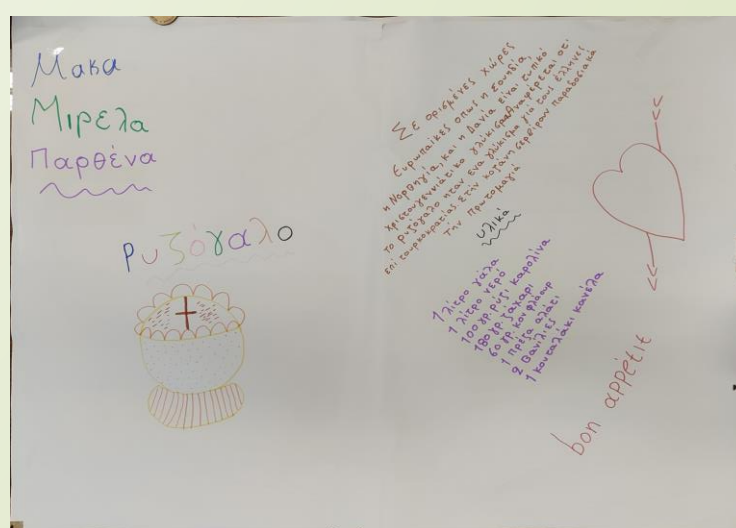 Μακα
Μιρελα
Παρθένα
Ρυζόγαλο
Σε ορισμένες χώρες
Ευρωπαϊκες οπως η Σουηδία,
η Νορβηγία, και η Δανία είναι τυπικό
χριστουγεννιάτικο γλύκισμα. Αναφέρεται οτι
το ρυζόγαλο ήταν ενα γλύκισμα για τους έλληνες
επί τουρκοκρατίας. Στην κοζάνη σερβίρουν παραδοσιακά
Την Πρωτομαγιά
υλικά
1 λίτρο γάλα
1 λίτρο νερό
100 γρ. ρύζι καρολίνα
180 γρ. ζάχαρι
60 γρ. κον φλαουρ
1 πρέζα αλάτι
2 βανίλιες
1 κουταλάκι κανέλα
bon appétit